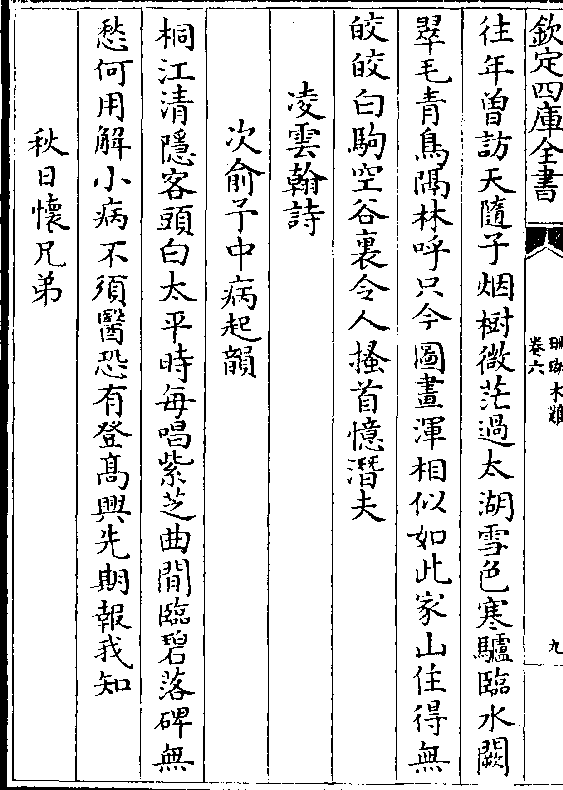 欽定四庫全書
珊瑚木難
卷六
九
往年曾訪天隨子烟樹微茫過太湖雪色寒驢臨水闕
翠毛青鳥隔林呼只今圖畫渾相似如此家山住得無
皎皎白駒空谷裏令人搔首憶潛夫
凌雲翰詩
次俞予中病起韻
桐江清隱客頭白太平時每唱紫芝曲閒臨碧落碑無
愁何用解小病不須醫恐有登髙興先期報我知
秋日懷兄弟